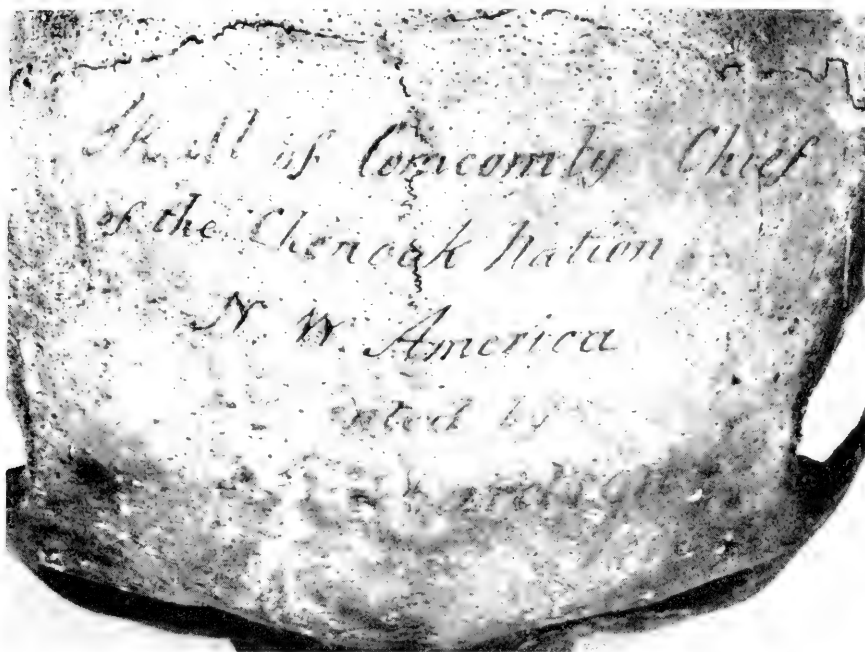 Skull of Comcomly Chief
of the Chenook Nation
N. W. America
by